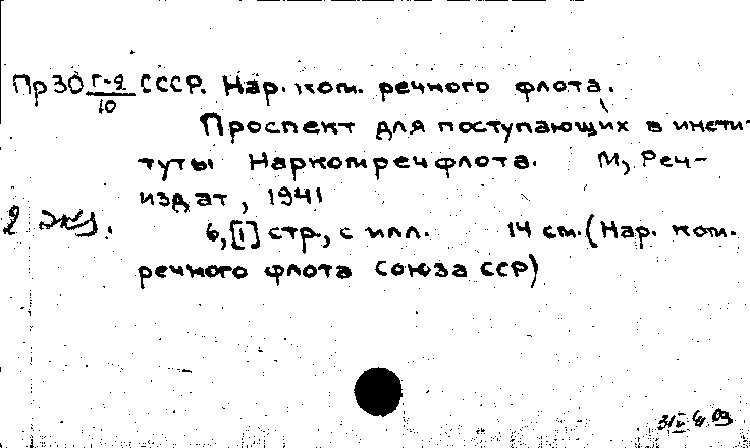 Пр30 Г-2/10 СССР. Нар. ком. речного флота.
Проспект для поступающих в инсти-
туты Наркомречфлота. М, Реч-
издат, 1941
2 экз. 6,[1] стр., с илл. 14 см. (Нар. ком.
речного флота Союза ССР)